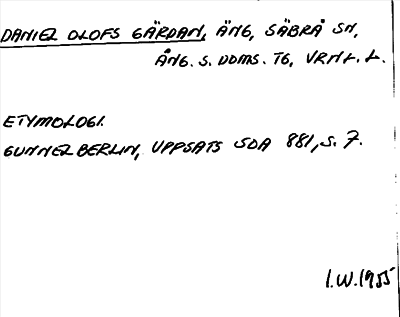 DANIEL OLOFS GÄRDAN, ÄNG, SÄBRÅ SN,
ÅNG. S. DOMS. TG, VRNL. L.
ETYMOLOGI.
GUNNEL BERLIN, UPPSATS SOA 881, S. 7.
I.W. 1955